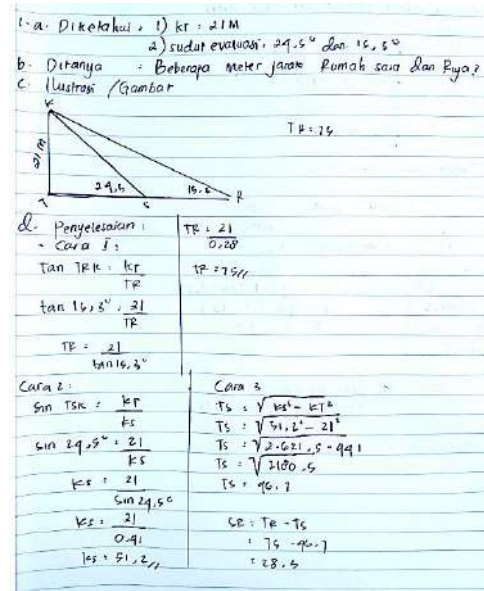 1. a. Diketahui : 1) KT : 21 M
2) sudut evaluasi : 24,5° dan 15,5°
b. Ditanya : Beberapa meter jarak Rumah sasa dan Riya?
c. Ilustrasi / Gambar
K
TR = 75
21 m
24,5
15,5
T
S
R
d. Penyelesaian :
- Cara I :
Tan TRK = KT
TR
tan 15,5° = 21
TR
TR = 21
tan 15,5°
TR = 21
0,28
TR = 75 //
Cara 2 :
Sin TSK = KT
KS
sin 24,5° = 21
KS
KS = 21
Sin 24,5°
KS = 21
0.41
KS = 51,2 //
Cara 3
TS = √KS² - KT²
TS = √51,2² - 21²
TS = √2.621,5 - 441
TS = √2180,5
TS = 46,7
SR = TR - TS
= 75 - 46,7
= 28.5